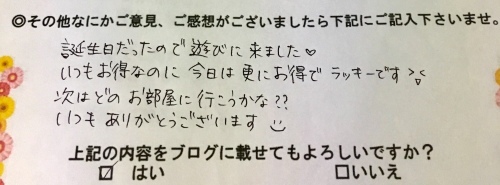 ◎その他なにかご意見、ご感想がございましたら下記にご記入下さいませ。
誕生日だったので遊びに来ました♡
いつもお得なのに今日は更にお得でラッキーです
次はどのお部屋に行こうかな??
いつもありがとうございます
上記の内容をブログに載せてもよろしいですか?
☑ はい □いいえ